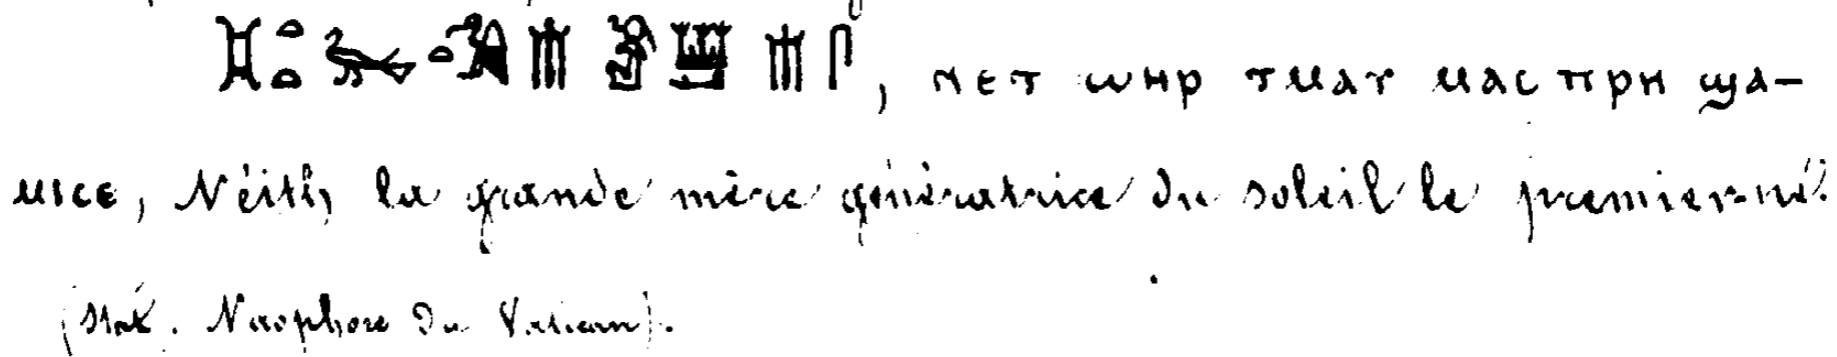 , ⲛⲉⲧ ⲱⲏⲣ ⲧⲙⲁⲩ ⲙⲁⲥ ⲡⲣⲏ ϣⲁ–
ⲙⲓⲥⲉ, Néith, la grande mère génératrice du soleil le premier-né.
(Stat. Naophore du Vatican).